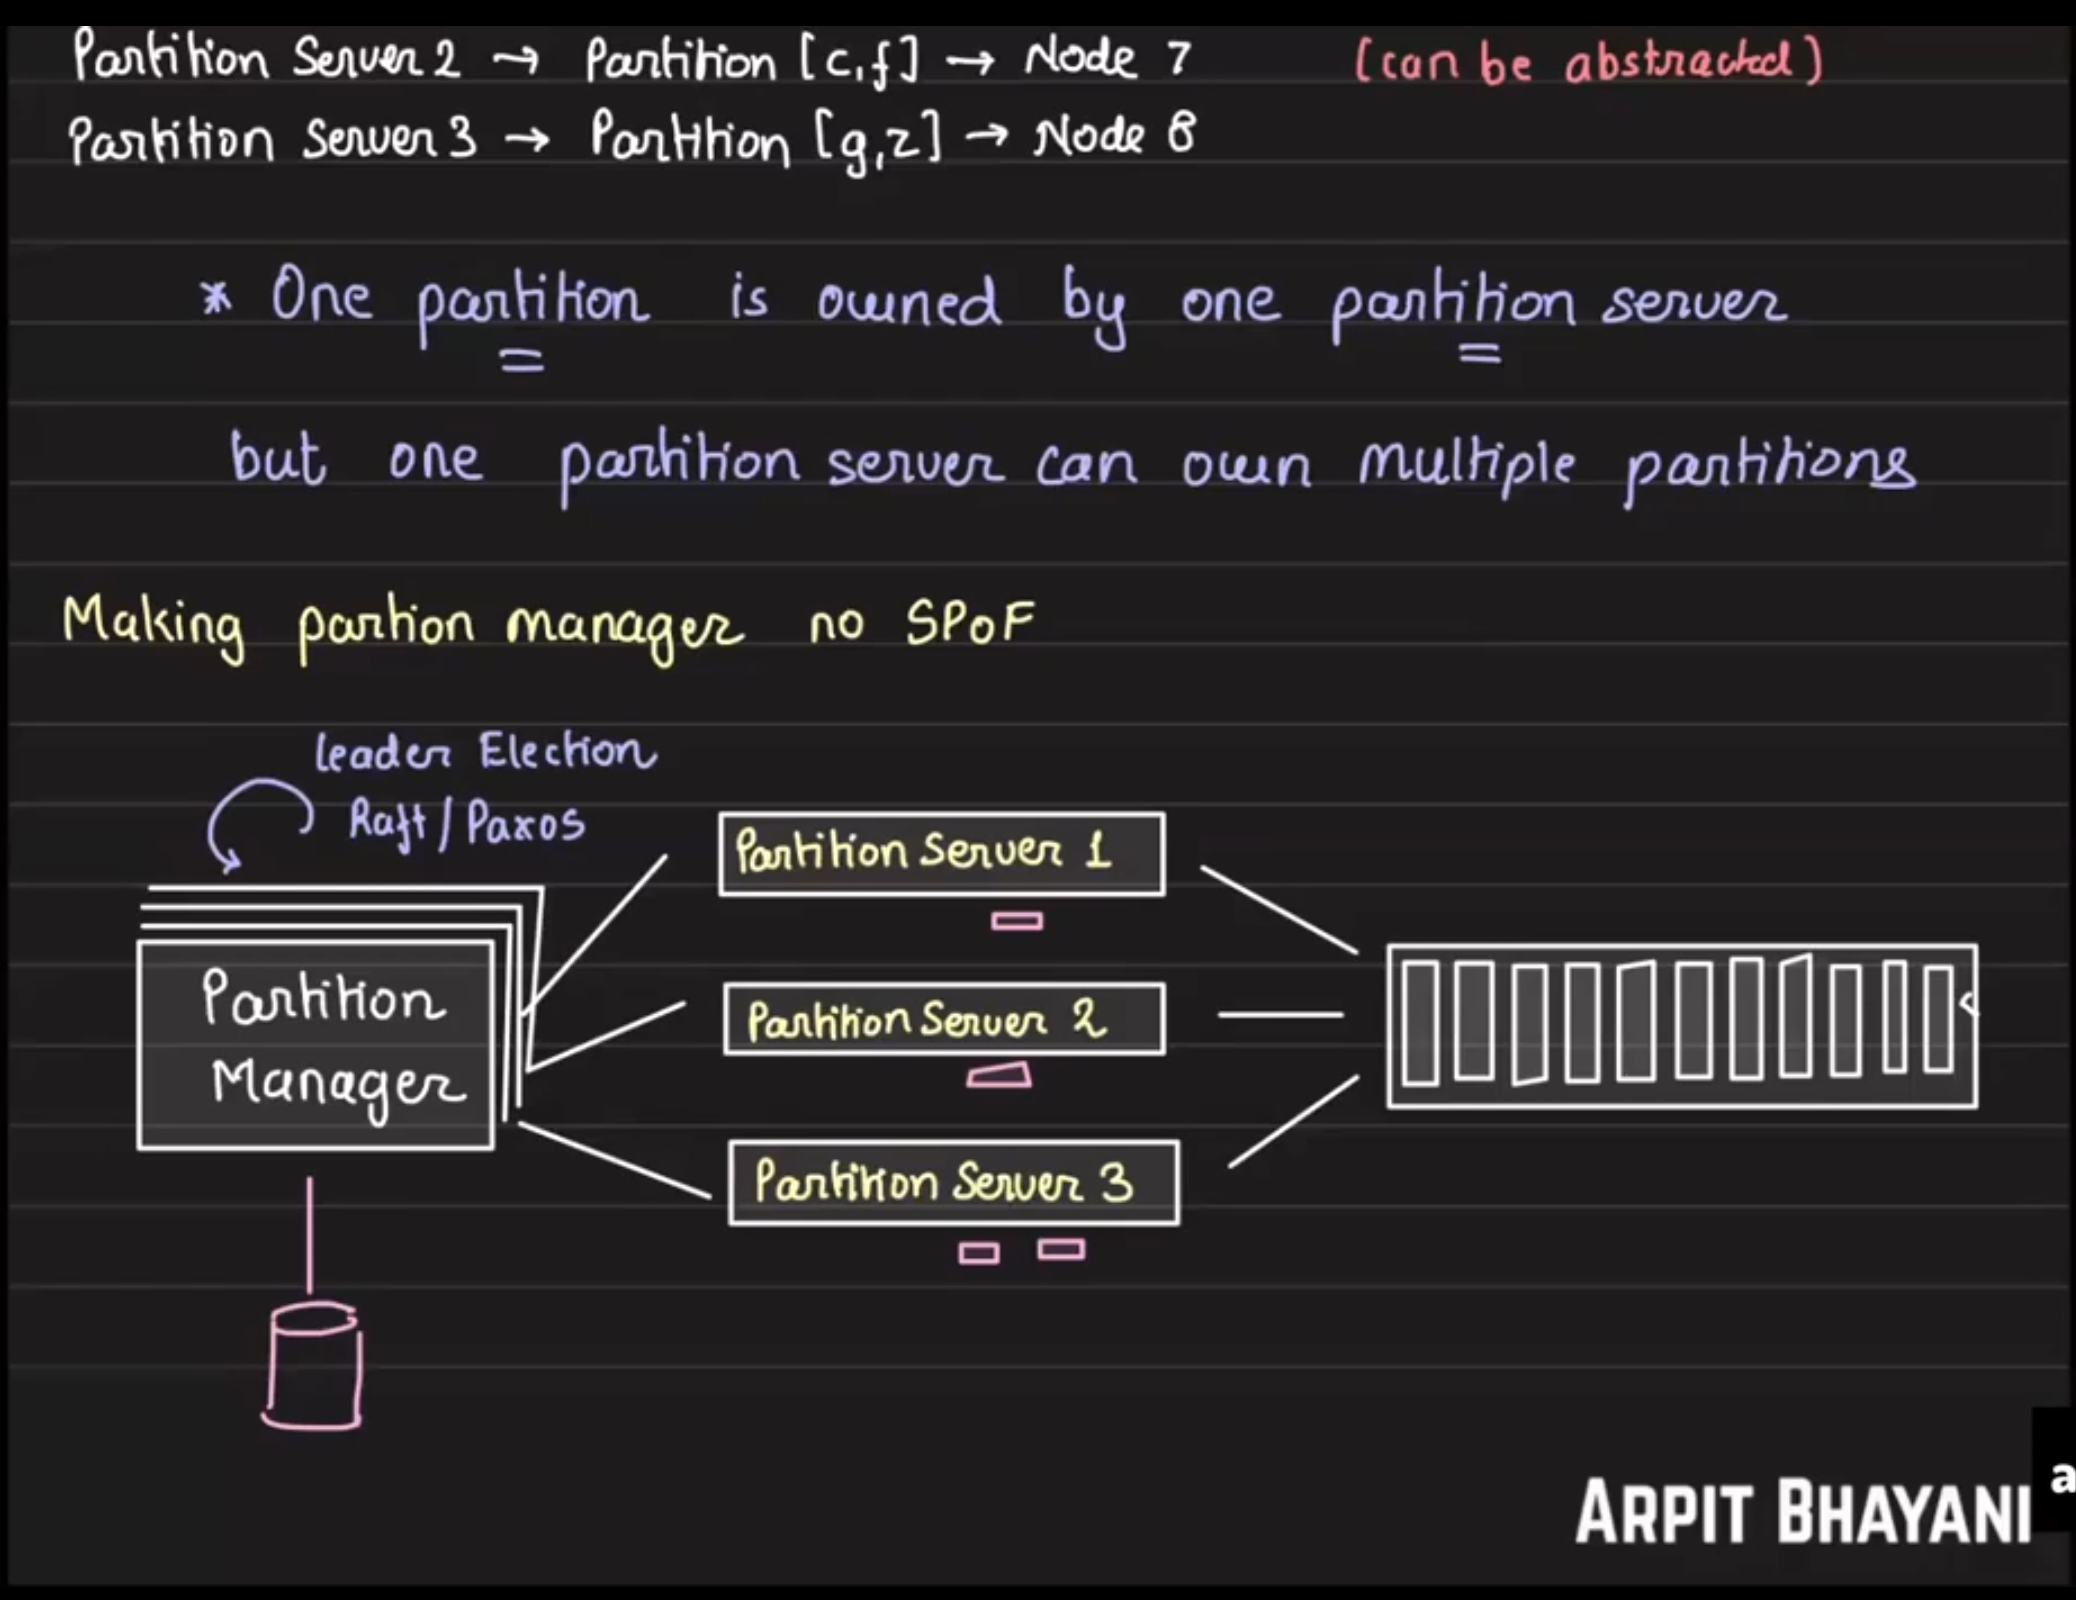 Partition Server 2 → Partition [c,f] → Node 7 (can be abstracted)
Partition Server 3 → Partition [g,z] → Node 8
* One partition is owned by one partition server
but one partition server can own multiple partitions
Making partion manager no SPoF
leader Election
Raft / Paxos
Partition Server 1
Partition Manager
Partition Server 2
Partition Server 3
ARPIT BHAYANI
a